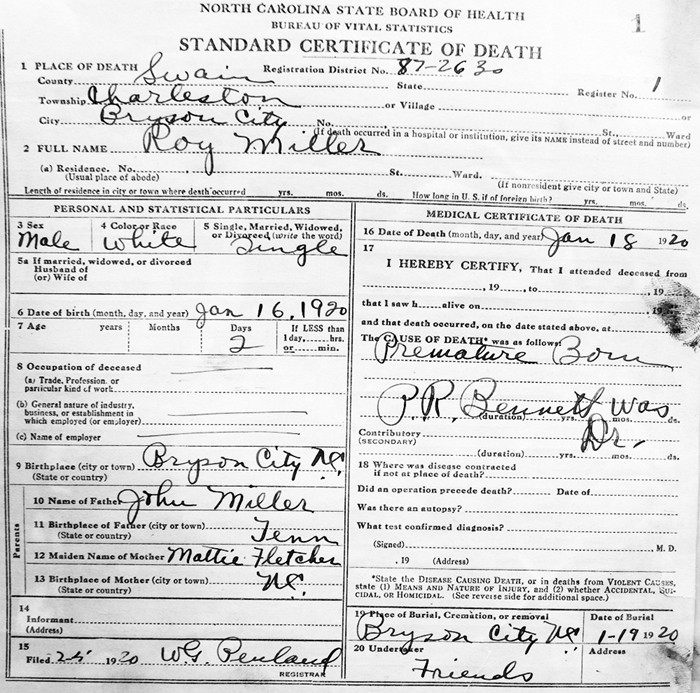 NORTH CAROLINA STATE BOARD OF HEALTH
BUREAU OF VITAL STATISTICS
STANDARD CERTIFICATE OF DEATH
1
1 PLACE OF DEATH Registration District No. 87-2630
County Swain State Register No. 1
Township Charleston or Village or
City Bryson City No. St., Ward
(If death occurred in a hospital or institution, give its NAME instead of street and number)
2 FULL NAME Roy Miller
(a) Residence. No. St. Ward.
(Usual place of abode) (If nonresident give city or town and State)
Length of residence in city or town where death occurred yrs. mos. ds. How long in U. S. if of foreign birth? yrs. mos. ds.
PERSONAL AND STATISTICAL PARTICULARS
3 Sex 4 Color or Race 5 Single, Married, Widowed,
or Divorced (write the word)
Male White Single
5a If married, widowed, or divorced
Husband of
(or) Wife of
6 Date of birth (month, day, and year) Jan 16, 1920
7 Age years Months Days If LESS than
2 1 day, hrs.
or min.
8 Occupation of deceased
(a) Trade, Profession, or
particular kind of work
(b) General nature of industry,
business, or establishment in
which employed (or employer)
(c) Name of employer
9 Birthplace (city or town) Bryson City N.C.
(State or country)
Parents
10 Name of Father John Miller
11 Birthplace of Father (city or town)
(State or country) Tenn
12 Maiden Name of Mother Mattie Fletcher
13 Birthplace of Mother (city or town)
(State or country) N.C.
14
Informant
(Address)
15
Filed 1920 W.G. Penland
REGISTRAR
MEDICAL CERTIFICATE OF DEATH
16 Date of Death (month, day, and year) Jan 18 1920
17
I HEREBY CERTIFY, That I attended deceased from
, 19 , to , 19
that I saw h alive on , 19
and that death occurred, on the date stated above, at
The CAUSE OF DEATH* was as follows:
Premature Born
P.R. Bennett was
(duration) yrs. mos. ds.
Contributory Dr.
(SECONDARY)
(duration) yrs. mos. ds.
18 Where was disease contracted
if not at place of death?
Did an operation precede death? Date of
Was there an autopsy?
What test confirmed diagnosis?
(Signed) M. D.
, 19 (Address)
*State the DISEASE CAUSING DEATH, or in deaths from VIOLENT CAUSES,
state (1) MEANS AND NATURE OF INJURY, and (2) whether ACCIDENTAL, SUI-
CIDAL, OR HOMICIDAL. (See reverse side for additional space.)
19 Place of Burial, Cremation, or removal Date of Burial
Bryson City N.C. 1-19 1920
20 Undertaker Address
Friends